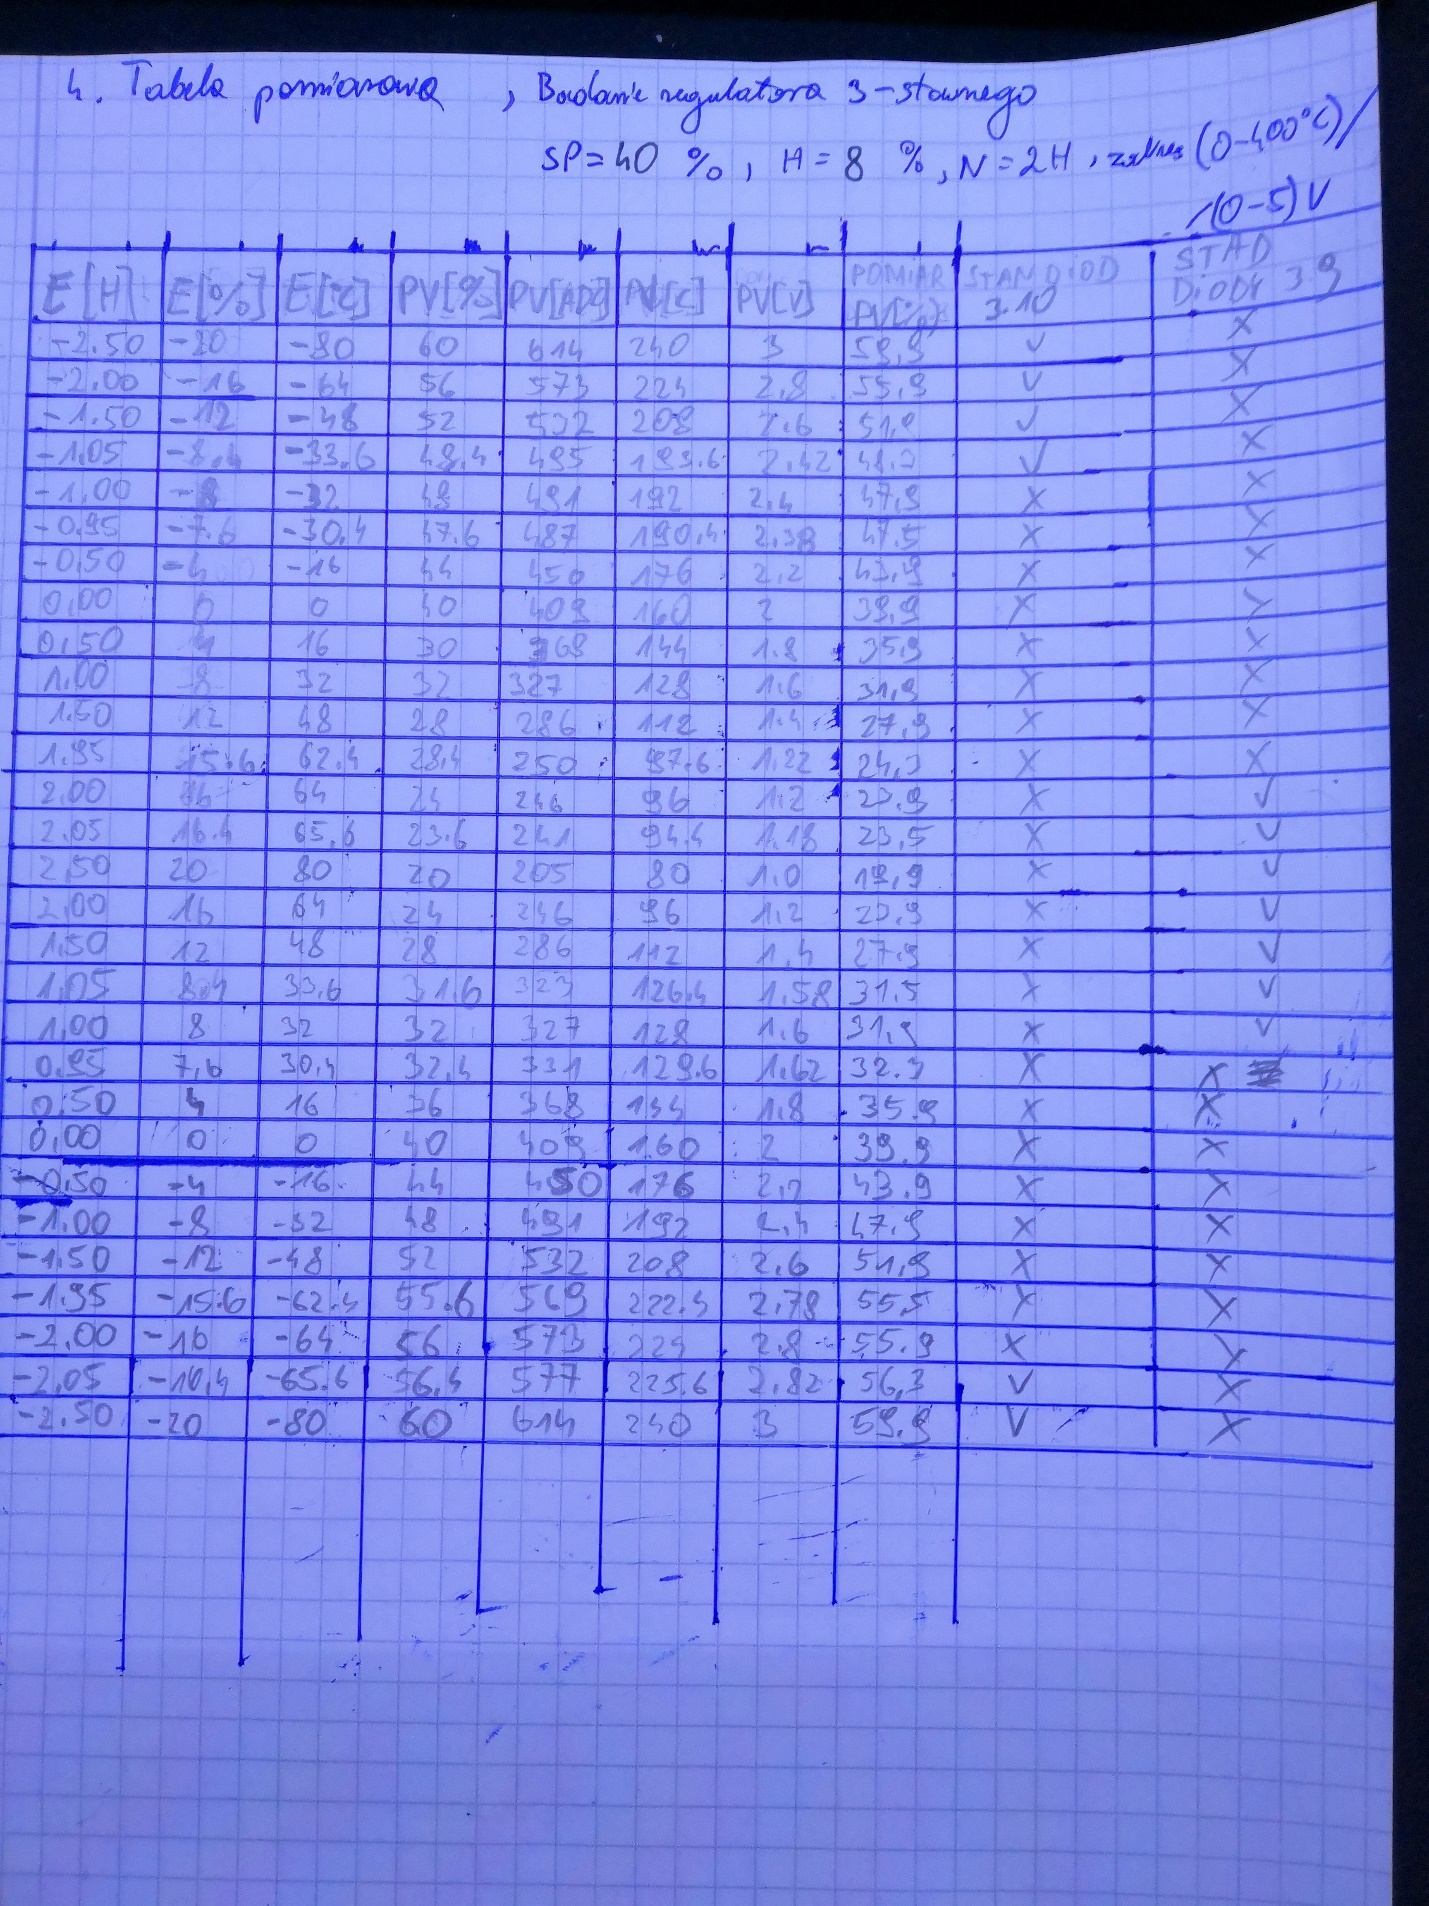 4. Tabela pomiarowa , Badanie regulatora 3-stawnego
SP = 40 %, H = 8 %, N = 2H, zakres (0-400°C)/
/(0-5)V
E[H] E[%] E[°C] PV[%] PV[ADC] PV[C] PV[V] POMIAR PV[%] STAN DIOD 3.10 STAD DIODY 3 9
-2.50 -20 -80 60 614 240 3 59,9 v x
-2.00 -16 -64 56 573 224 2,8 55,9 v x
-1.50 -12 -48 52 532 208 2.6 51,9 v x
-1.05 -8,4 -33.6 48.4 495 193.6 2.42 48.3 v x
-1.00 -8 -32 48 491 192 2.4 47,9 x x
-0.95 -7.6 -30.4 47.6 487 190.4 2.38 47.5 x x
-0.50 -4 -16 44 450 176 2.2 43,9 x x
0,00 0 0 40 409 160 2 39,9 x x
0,50 4 16 30 368 144 1.8 35,9 x x
1.00 8 32 32 327 128 1.6 31,9 x x
1.50 12 48 28 286 112 1.4 27,9 x x
1.95 15.6 62.4 28,4 250 97.6 1.22 24,3 x x
2.00 16 64 24 246 96 1.2 23.9 x v
2.05 16.4 65.6 23.6 241 94.4 1.18 23,5 x v
2,50 20 80 20 205 80 1.0 19,9 x v
2,00 16 64 24 246 96 1.2 23.9 x v
1.50 12 48 28 286 112 1.4 27.9 x v
1,05 8.4 33,6 31.6 323 126.4 1.58 31.5 x v
1,00 8 32 32 327 128 1.6 31,9 x v
0.95 7,6 30,4 32,4 331 129.6 1.62 32.3 x x
0,50 4 16 36 368 144 1.8 35.9 x x
0,00 0 0 40 409 160 2 39.9 x x
-0.50 -4 -16 44 450 176 2,2 43.9 x x
-1.00 -8 -32 48 491 192 2,4 47.9 x x
-1.50 -12 -48 52 532 208 2.6 51,9 x x
-1.95 -15.6 -62.4 55.6 569 222.4 2.78 55,5 x x
-2.00 -16 -64 56 573 224 2.8 55.9 x x
-2,05 -10,4 -65.6 56,4 577 225.6 2.82 56,3 v x
-2.50 -20 -80 60 614 240 3 59.9 v x